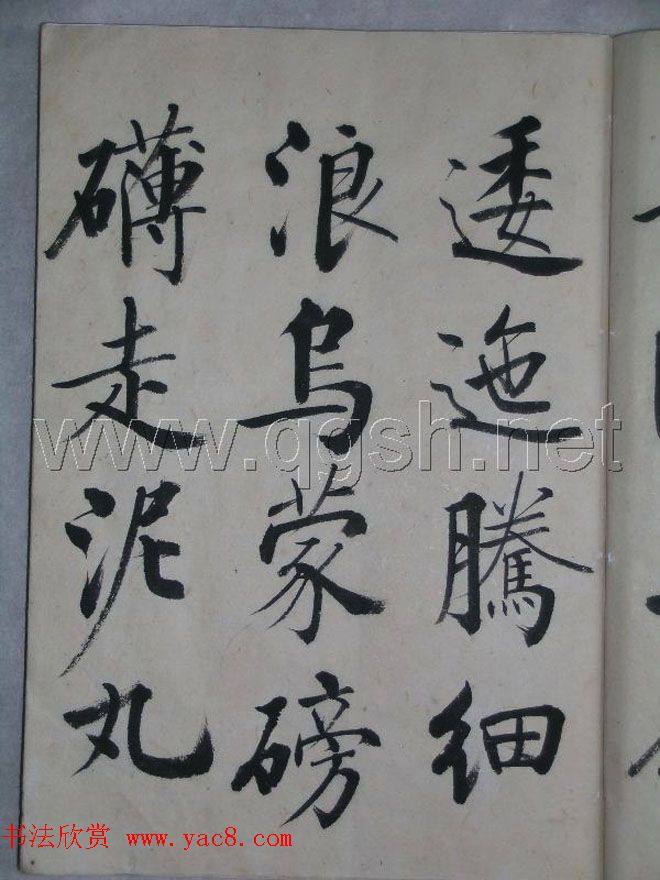 逶迤騰细
浪乌蒙磅
礴走泥丸
www.qgsh.net
书法欣赏 www.yac8.com